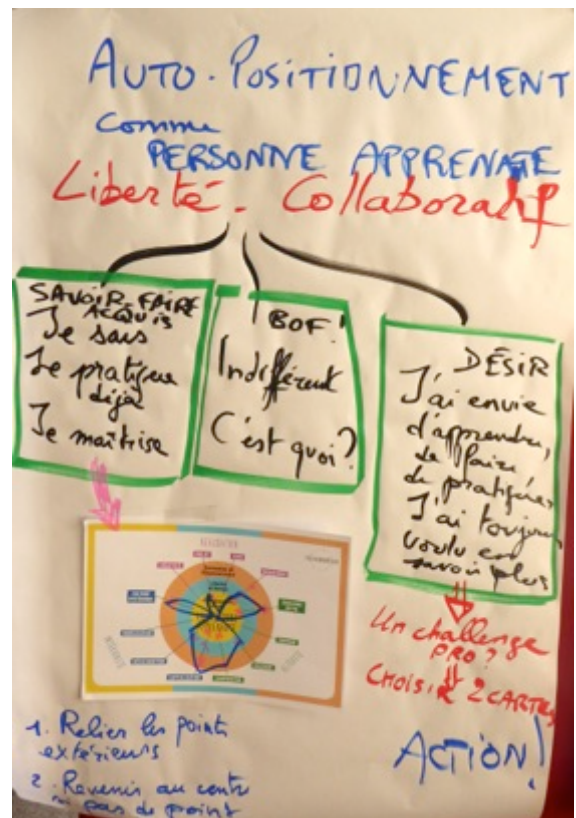 AUTO-POSITIONNEMENT
comme
PERSONNE APPRENANTE
Liberté - Collaboratif
SAVOIR-FAIRE
ACQUIS
Je sais
Je pratique
déjà
Je maîtrise
BOF!
Indifférent
C'est quoi?
DÉSIR
J'ai envie
d'apprendre,
de faire,
de pratiquer
J'ai toujours
voulu en
savoir plus
Un challenge
PRO?
CHOISIR 2 CARTES
ACTION!
1. Relier les points
extérieurs
2. Revenir au centre
si pas de point